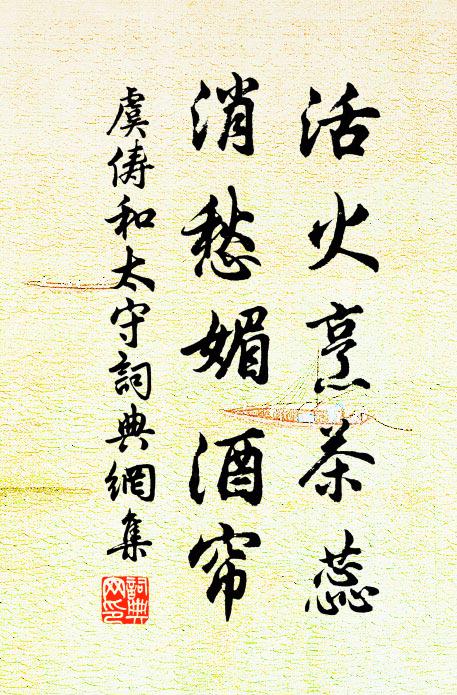 活火烹茶蕊
消愁媚酒帘
虞俦和太守詞典網集
詞典網印